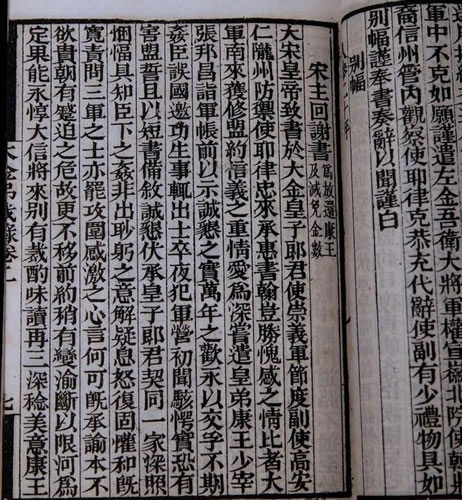 軍中不克如願謹遣左金吾衞大將軍權宣徽北院使韓鼎
裔信州管內觀察使耶律克恭充代辭使副有少禮物具如
別幅謹奉書奏辭以聞謹白
別幅
宋主回謝書 爲放還康王及減免金數
大宋皇帝致書於大金皇子郎君使崇義軍節度副使高安
仁隴州防禦使耶律忠來承惠書翰豈勝愧感之情比者大
軍南來獲修盟約信義之重情愛爲深嘗遣皇弟康王少宰
張邦昌詣軍帳前以示誠懇之實萬年之歡永以交孚不期
姦臣誤國邀功生事輒出士卒夜犯軍營初聞駭愕實恐有
害盟誓且以短書備敘誠懇伏承皇子郎君契同一家深照
悃愊具知臣下之姦非出眇躬之意解疑息怒復固懽和旣
寬責問三軍之士亦罷攻圍感激之心言何可旣承諭本不
欲貴朝有蹙迫之危故更不移前約稍有變渝斷以限河爲
定果能永惇大信將來別有裁酌味讀再三深稔美意康王
大金弔伐錄卷二
七